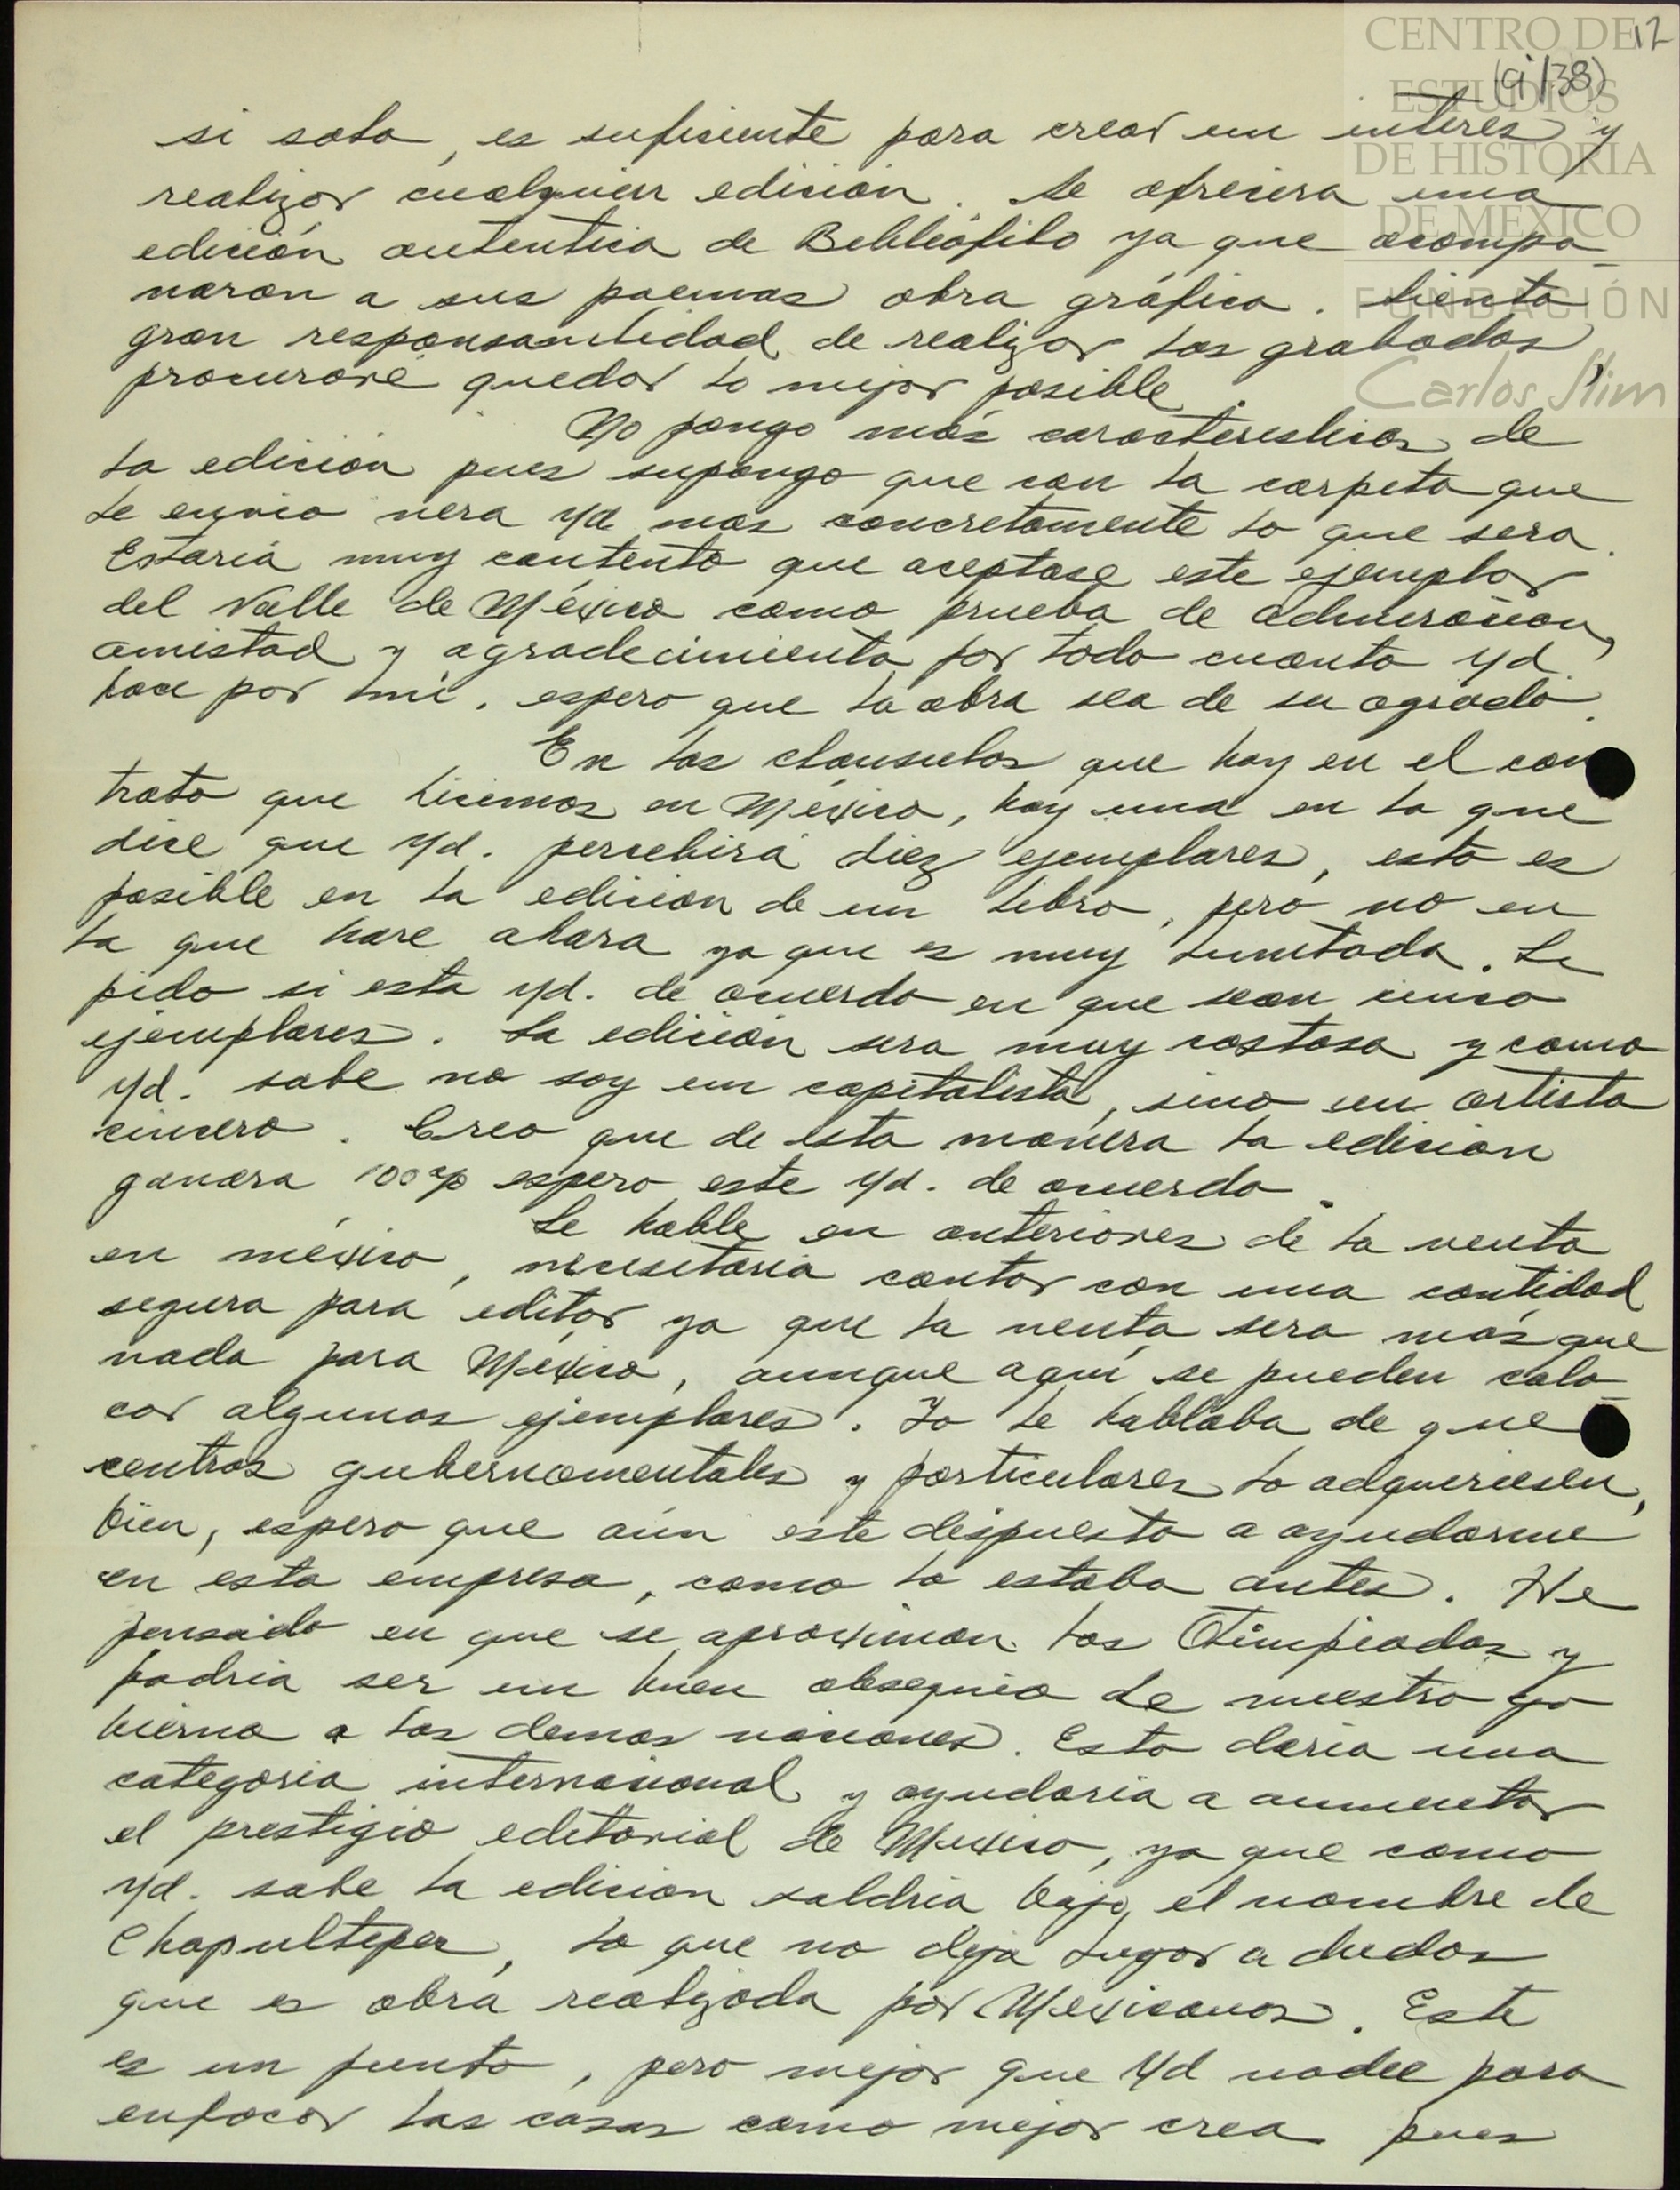 CENTRO DE
ESTUDIOS
DE HISTORIA
DE MEXICO
FUNDACIÓN
Carlos Slim
12
(9/38)
si sola, es suficiente para crear un interes y
realizar cualquier edición. Se ofrecera una
edición autentica de Bibliófilo ya que acompa-
ñaran a sus poemas obra gráfica. Siento
gran responsabilidad de realizar los grabados
procuraré quedar lo mejor posible.
No pongo más caracteristicas de
la edición pues supongo que con la carpeta que
le envio vera Yd mas concretamente lo que sera.
Estaria muy contento que aceptase este ejemplar
del Valle de México como prueba de admiración,
amistad y agradecimiento por todo cuanto Yd.
hace por mi. espero que la obra sea de su agrado.
En las clausulas que hay en el con
trato que hicimos en México, hay una en la que
dice que Yd. percebirá diez ejemplares, esto es
posible en la edicion de un libro, pero no en
la que hare ahora ya que es muy limitada. Le
pido si esta Yd. de acuerdo en que sean cinco
ejemplares. La edición sera muy costosa y como
Yd. sabe no soy un capitalista, sino un artista
cincero. Creo que de esta manera la edicion
ganara 100% espero este Yd. de acuerdo.
Le hable en anteriores de la venta
en méxico, necesitaria contar con una cantidad
segura para editar ya que la venta sera más que
nada para México, aunque aqui se pueden colo-
car algunos ejemplares. Yo le hablaba de que
centros gubernamentales y particulares lo adqueriesen,
bien, espero que aún este dispuesto a ayudarme
en esta empresa, como lo estaba antes. He
pensado en que se aproximan las Olimpiadas y
podria ser un buen obsequio de nuestro go
bierno a las demas naciones. Esto daria una
categoria internacional y ayudaria a aumentar
el prestigio editorial de Mexico, ya que como
Yd. sabe la edicion saldria bajo el nombre de
Chapultepec, lo que no deja lugar a dudas
que es obra realizada por Mexicanos. Este
es un punto, pero mejor que Yd nadie para
enfocar las cosas como mejor crea pues